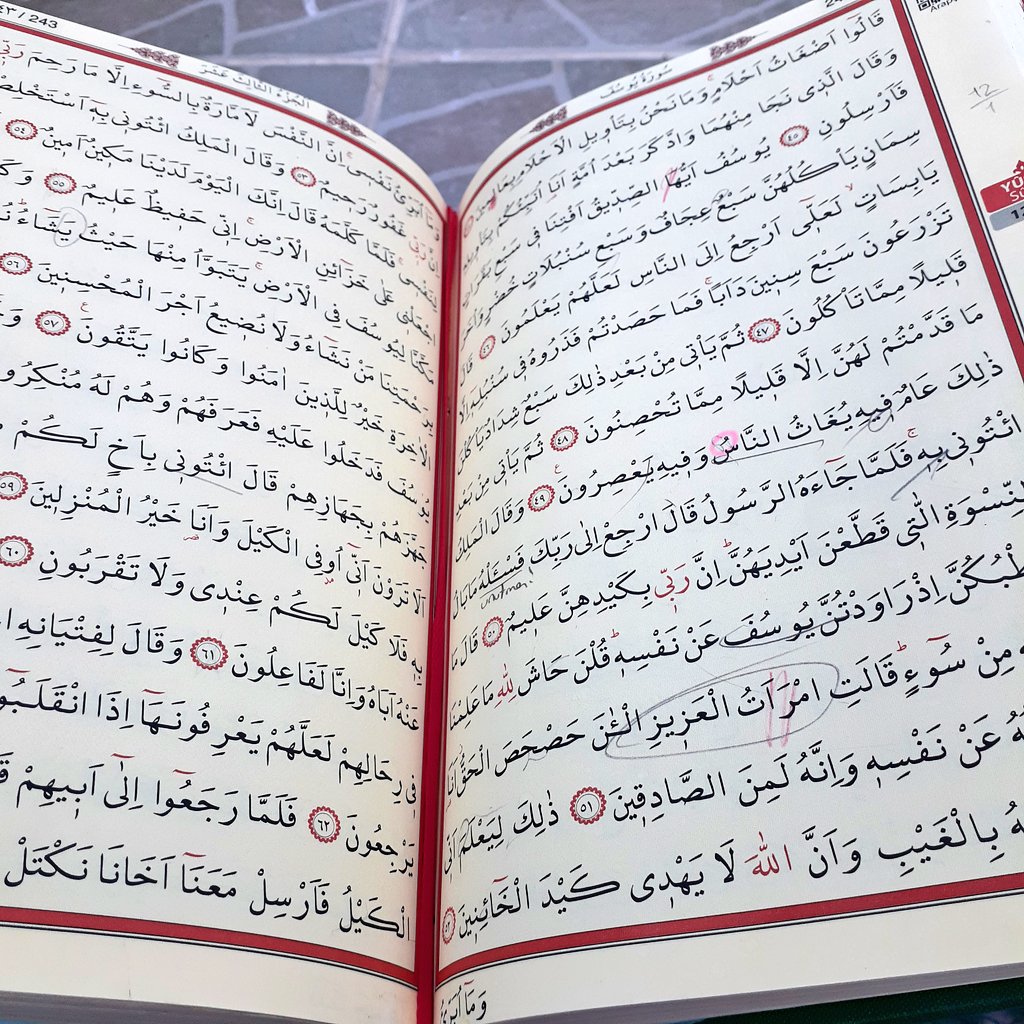 سُورَةُ يُوسُفَ
قَالُوا اَضْغَاثُ اَحْلَامٍ وَمَا نَحْنُ بِتَأْوِيلِ الْاَحْلَامِ
وَقَالَ الَّذِي نَجَا مِنْهُمَا وَادَّكَرَ بَعْدَ اُمَّةٍ اَنَا اُنَبِّئُكُمْ
فَاَرْسِلُونِ ٤٥ يُوسُفُ اَيُّهَا الصِّدِّيقُ اَفْتِنَا فِي سَبْعِ
سِمَانٍ يَأْكُلُهُنَّ سَبْعٌ عِجَافٌ وَسَبْعِ سُنْبُلَاتٍ خُضْرٍ
يَابِسَاتٍ لَعَلِّي اَرْجِعُ اِلَى النَّاسِ لَعَلَّهُمْ يَعْلَمُونَ ٤٦ قَالَ
تَزْرَعُونَ سَبْعَ سِنِينَ دَاَبًا فَمَا حَصَدْتُمْ فَذَرُوهُ فِي سُنْبُلِهِ اِلَّا
قَلِيلًا مِمَّا تَأْكُلُونَ ٤٧ ثُمَّ يَأْتِي مِنْ بَعْدِ ذٰلِكَ سَبْعٌ شِدَادٌ يَأْكُلْنَ
مَا قَدَّمْتُمْ لَهُنَّ اِلَّا قَلِيلًا مِمَّا تُحْصِنُونَ ٤٨ ثُمَّ يَأْتِي مِنْ بَعْدِ
ذٰلِكَ عَامٌ فِيهِ يُغَاثُ النَّاسُ وَفِيهِ يَعْصِرُونَ ٤٩ وَقَالَ الْمَلِكُ
ائْتُونِي بِهِ فَلَمَّا جَاءَهُ الرَّسُولُ قَالَ ارْجِعْ اِلٰى رَبِّكَ فَسْئَلْهُ مَا بَالُ
النِّسْوَةِ الّٰتِي قَطَّعْنَ اَيْدِيَهُنَّ اِنَّ رَبِّي بِكَيْدِهِنَّ عَلِيمٌ ٥٠ قَالَ مَا
طْبُكُنَّ اِذْ رَاوَدْتُنَّ يُوسُفَ عَنْ نَفْسِهِ قُلْنَ حَاشَ لِلّٰهِ مَا عَلِمْنَا
مِنْ سُوءٍ قَالَتِ امْرَاَتُ الْعَزِيزِ الْـٰٔنَ حَصْحَصَ الْحَقُّ اَنَا
عَنْ نَفْسِهِ وَاِنَّهُ لَمِنَ الصَّادِقِينَ ٥١ ذٰلِكَ لِيَعْلَمَ اَنِّي
بِالْغَيْبِ وَاَنَّ اللّٰهَ لَا يَهْدِي كَيْدَ الْخَائِنِينَ ٥٢
وَمَا اُبَرِّئُ
٢٤٣ / 243
الْجُزْءُ الثَّالِثَ عَشَرَ
وَمَا اُبَرِّئُ نَفْسِي اِنَّ النَّفْسَ لَاَمَّارَةٌ بِالسُّوءِ اِلَّا مَا رَحِمَ رَبِّي
اِنَّ رَبِّي غَفُورٌ رَحِيمٌ ٥٣ وَقَالَ الْمَلِكُ ائْتُونِي بِهِ اَسْتَخْلِصْهُ
لِنَفْسِي فَلَمَّا كَلَّمَهُ قَالَ اِنَّكَ الْيَوْمَ لَدَيْنَا مَكِينٌ اَمِينٌ ٥٤
اجْعَلْنِي عَلٰى خَزَائِنِ الْاَرْضِ اِنِّي حَفِيظٌ عَلِيمٌ ٥٥
مَكَّنَّا لِيُوسُفَ فِي الْاَرْضِ يَتَبَوَّاُ مِنْهَا حَيْثُ يَشَاءُ
بِرَحْمَتِنَا مَنْ نَشَاءُ وَلَا نُضِيعُ اَجْرَ الْمُحْسِنِينَ ٥٦
الْاٰخِرَةِ خَيْرٌ لِلَّذِينَ اٰمَنُوا وَكَانُوا يَتَّقُونَ ٥٧
يُوسُفَ فَدَخَلُوا عَلَيْهِ فَعَرَفَهُمْ وَهُمْ لَهُ مُنْكِرُو
جَهَّزَهُمْ بِجَهَازِهِمْ قَالَ ائْتُونِي بِاَخٍ لَكُمْ
اَلَا تَرَوْنَ اَنِّي اُوفِي الْكَيْلَ وَاَنَا خَيْرُ الْمُنْزِلِينَ ٥٩
بِهِ فَلَا كَيْلَ لَكُمْ عِنْدِي وَلَا تَقْرَبُونِ ٦٠
عَنْهُ اَبَاهُ وَاِنَّا لَفَاعِلُونَ ٦١ وَقَالَ لِفِتْيَانِهِ
فِي رِحَالِهِمْ لَعَلَّهُمْ يَعْرِفُونَهَا اِذَا انْقَلَبُو
يَرْجِعُونَ ٦٢ فَلَمَّا رَجَعُوا اِلٰى اَبِيهِمْ
الْكَيْلُ فَاَرْسِلْ مَعَنَا اَخَانَا نَكْتَلْ